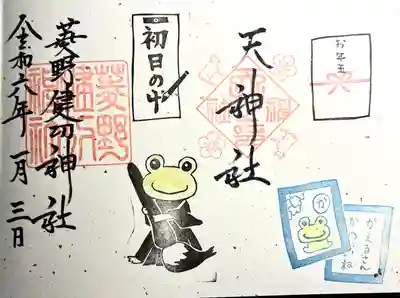 お年玉
天神社
初日の出
菱野健功神社
令和六年一月三日
か
かえるさん